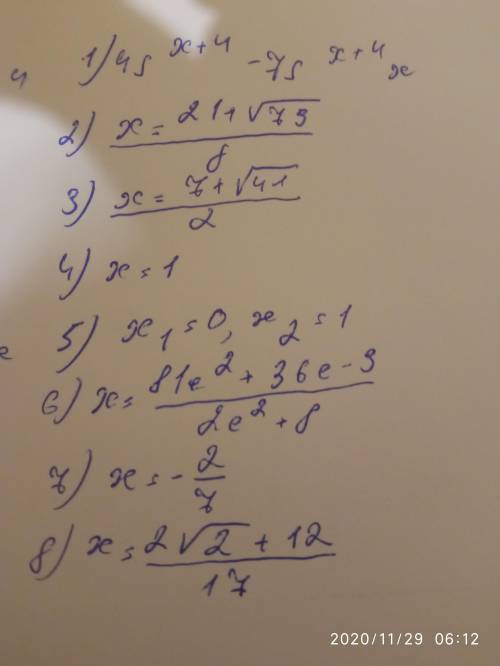 1) 4s^{x+4} - 7s^{x+4}x
2) x = \frac{21+\sqrt{73}}{8}
3) x = \frac{7+\sqrt{41}}{2}
4) x = 1
5) x_1 = 0, x_2 = 1
6) x = \frac{81e^2 + 36e - 3}{2e^2 + 8}
7) x = -\frac{2}{7}
8) x = \frac{2\sqrt{2} + 12}{17}
2020/11/29 06:12